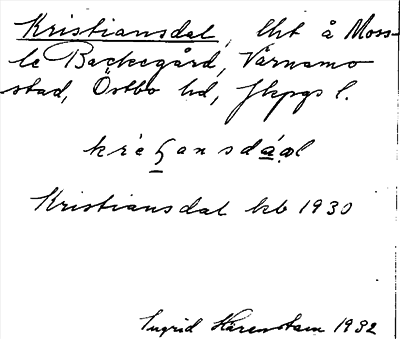 Kristiansdal, lht å Moss-
le Backegård, Värnamo
stad, Östbo hd, Jkpgs l.
Kristiansdal kb 1930
Ingrid Härenstam 1932